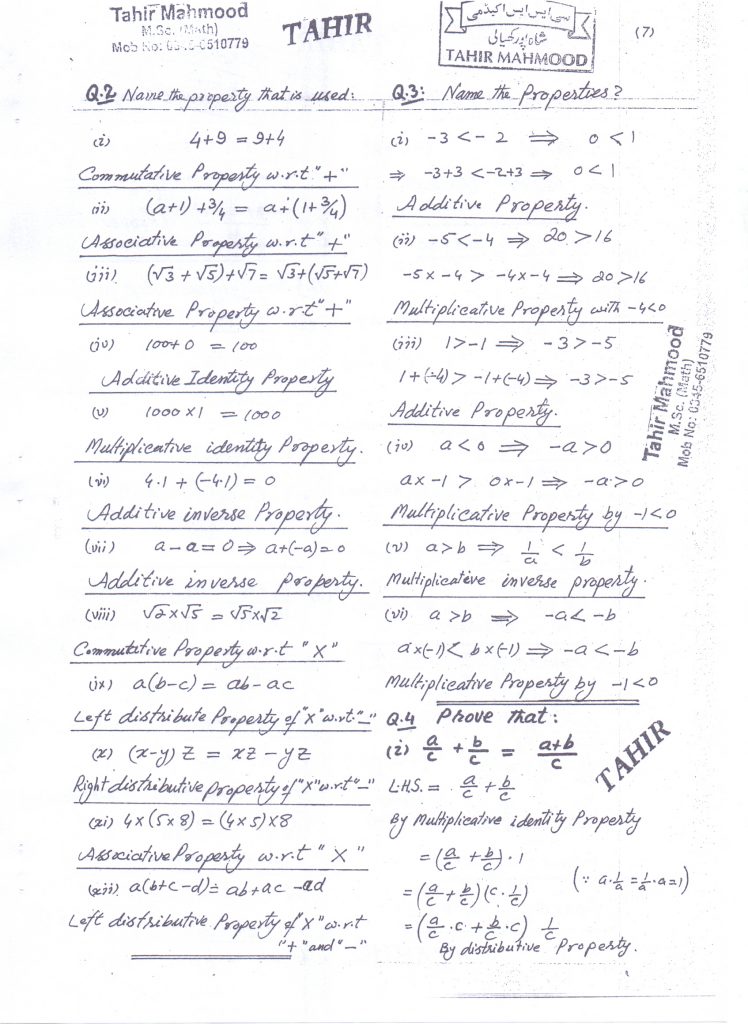 Tahir Mahmood
M.Sc. (Math)
Mob No: 0345-6510779
TAHIR
سی ایس ایس اکیڈمی
شاہ پور کھیالی
TAHIR MAHMOOD
(7)
Q.2 Name the property that is used:
(i) 4+9 = 9+4
Commutative Property w.r.t "+"
(ii) (a+1) + 3/4 = a+(1+3/4)
Associative Property w.r.t "+"
(iii) (√3 + √5)+√7 = √3+(√5+√7)
Associative Property w.r.t "+"
(iv) 100+0 = 100
Additive Identity Property
(v) 1000 × 1 = 1000
Multiplicative identity Property.
(vi) 4.1 + (-4.1) = 0
Additive inverse Property.
(vii) a-a=0 ⇒ a+(-a)=0
Additive inverse Property.
(viii) √2×√5 = √5×√2
Commutative Property w.r.t "×"
(ix) a(b-c) = ab-ac
Left distribute Property of "×" w.r.t. "-"
(x) (x-y)z = xz-yz
Right distributive Property of "×" w.r.t "-"
(xi) 4×(5×8) = (4×5)×8
Associative Property w.r.t "×"
(xii) a(b+c-d) = ab+ac-ad
Left distributive Property of "×" w.r.t
"+" and "-"
Q.3: Name the Properties?
(i) -3 < -2 ⇒ 0 < 1
⇒ -3+3 < -2+3 ⇒ 0 < 1
Additive Property.
(ii) -5 < -4 ⇒ 20 > 16
-5×-4 > -4×-4 ⇒ 20 > 16
Multiplicative Property with -4<0
(iii) 1 > -1 ⇒ -3 > -5
1+(-4) > -1+(-4) ⇒ -3 > -5
Additive Property.
(iv) a < 0 ⇒ -a > 0
a×-1 > 0×-1 ⇒ -a > 0
Multiplicative Property by -1<0
(v) a > b ⇒ 1/a < 1/b
Multiplicative inverse property.
(vi) a > b ⇒ -a < -b
a×(-1) < b×(-1) ⇒ -a < -b
Multiplicative Property by -1<0
Q.4 Prove that:
(i) a/c + b/c = a+b/c
L.H.S. = a/c + b/c
By Multiplicative identity Property
= (a/c + b/c)·1
= (a/c + b/c)(c·1/c) (∵ a·1/a = 1/a·a = 1)
= (a/c·c + b/c·c) 1/c
By distributive Property.
Tahir Mahmood
M.Sc. (Math)
Mob No: 0345-6510779
TAHIR